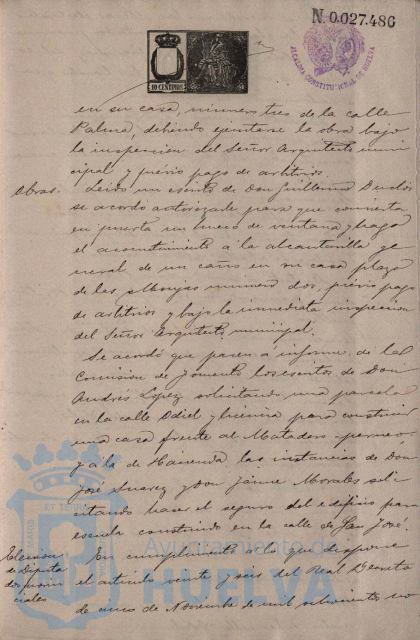 N. 0.027.486
10 CENTIMOS
ALCALDIA CONSTITUCIONAL DE HUELVA
en su casa, número tres de la calle
Palma, debiendo ejecutarse la obra bajo
la inspeccion del Señor Arquitecto muni
cipal y previo pago de arbitrios.
Obras.
Leido un escrito de Don Guillermo
se acordó autorizarle para que convierta
en puerta un hueco de ventana y haga
el acometimiento á la alcantarilla ge
neral de un caño en su casa plaza
de las Monjas número dos, previo pago
de arbitrios y bajo la inmediata inspeccion
del Señor Arquitecto municipal.
Se acordó que pasen a informe de la
Comision de Fomento los escritos de Don
Andrés Lopez solicitando una parcela
en la calle Odiel y licencia para construir
una casa frente al Matadero
y á la de Hacienda las instancias de Don
José Suarez y Don Jaime Morales soli
citando hacer el seguro del edificio para
escuela construido en la calle de San José.
Eleccion
de Diputa
dos provin
ciales
En cumplimiento a lo que dispone
el artículo veinte y seis del Real Decreto
de cinco de Noviembre de mil ochocientos no
Ayuntamiento de
HUELVA